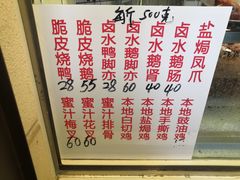 斤 500克
脆皮烧鸭 28
脆皮烧鹅 55
卤水鸭脚亦 28
卤水鹅脚亦 60
卤水鹅肾 40
卤水鹅肠 40
盐焗凤爪
蜜汁梅叉 60
蜜汁花叉 60
蜜汁排骨
本地白切鸡
本地盐焗鸡
本地手撕鸡
本地豉油鸡